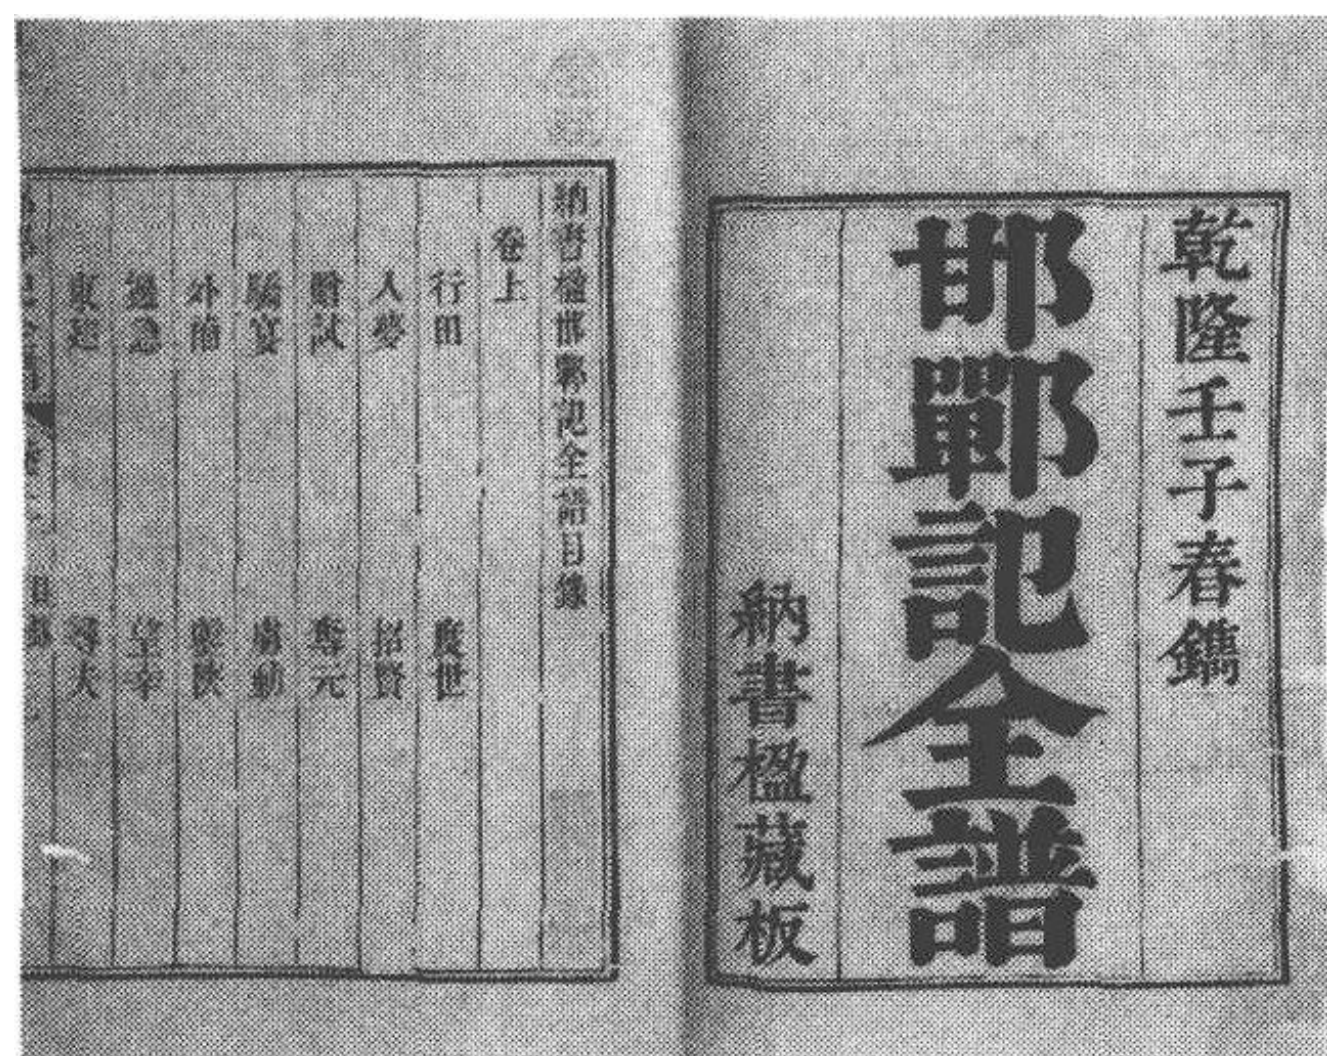 乾隆壬子春鐫
邯鄲記全譜
納書楹藏板
納書楹邯鄲記全譜目錄
卷上
行田 度世
入夢 招賢
贈試 奪元
驕宴 虜動
外補 鑿郟
邊急 望幸
東巡 尋夫
目錄